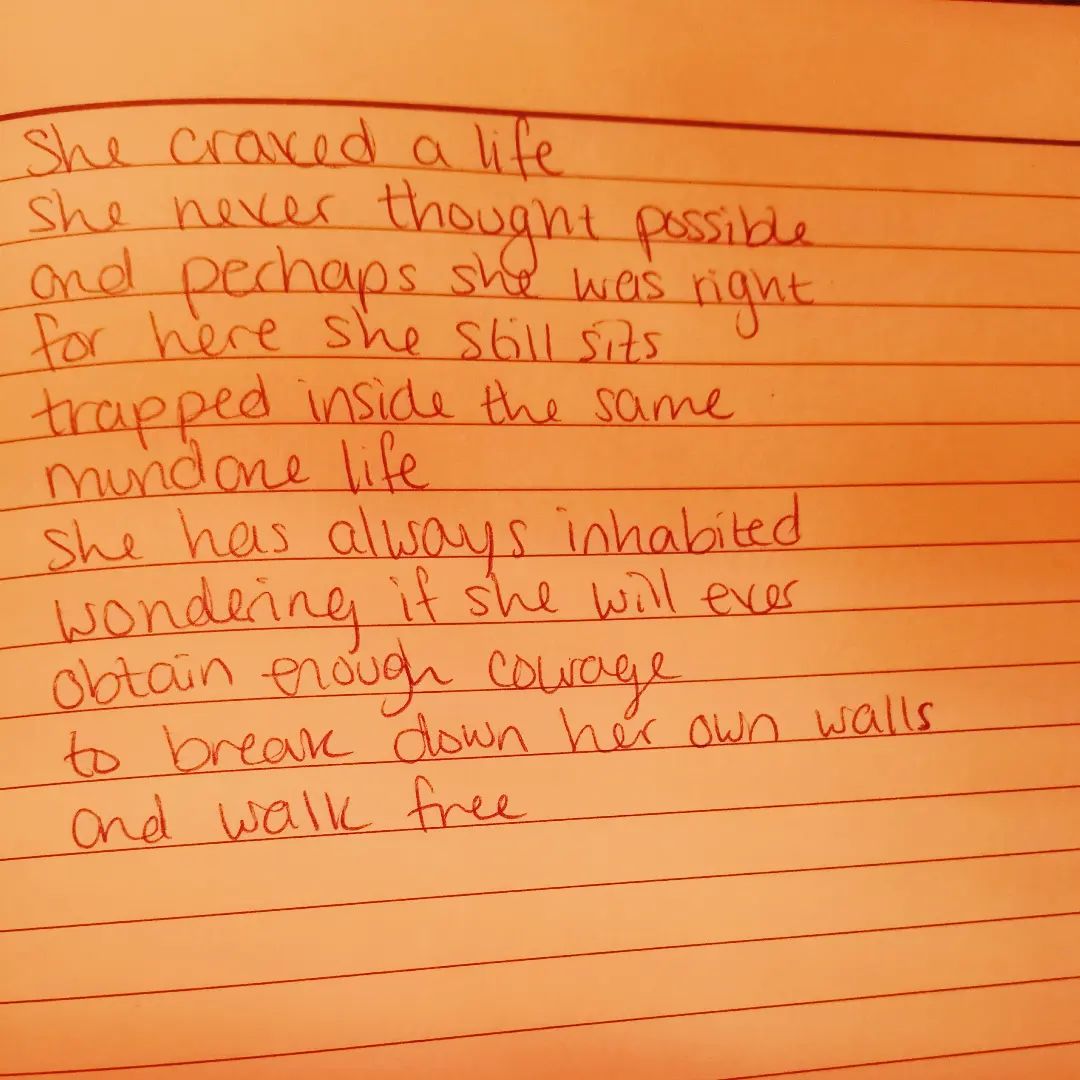 She craved a life
She never thought possible
and perhaps she was right
for here she still sits
trapped inside the same
mundane life
She has always inhabited
wondering if she will ever
obtain enough courage
to break down her own walls
and walk free